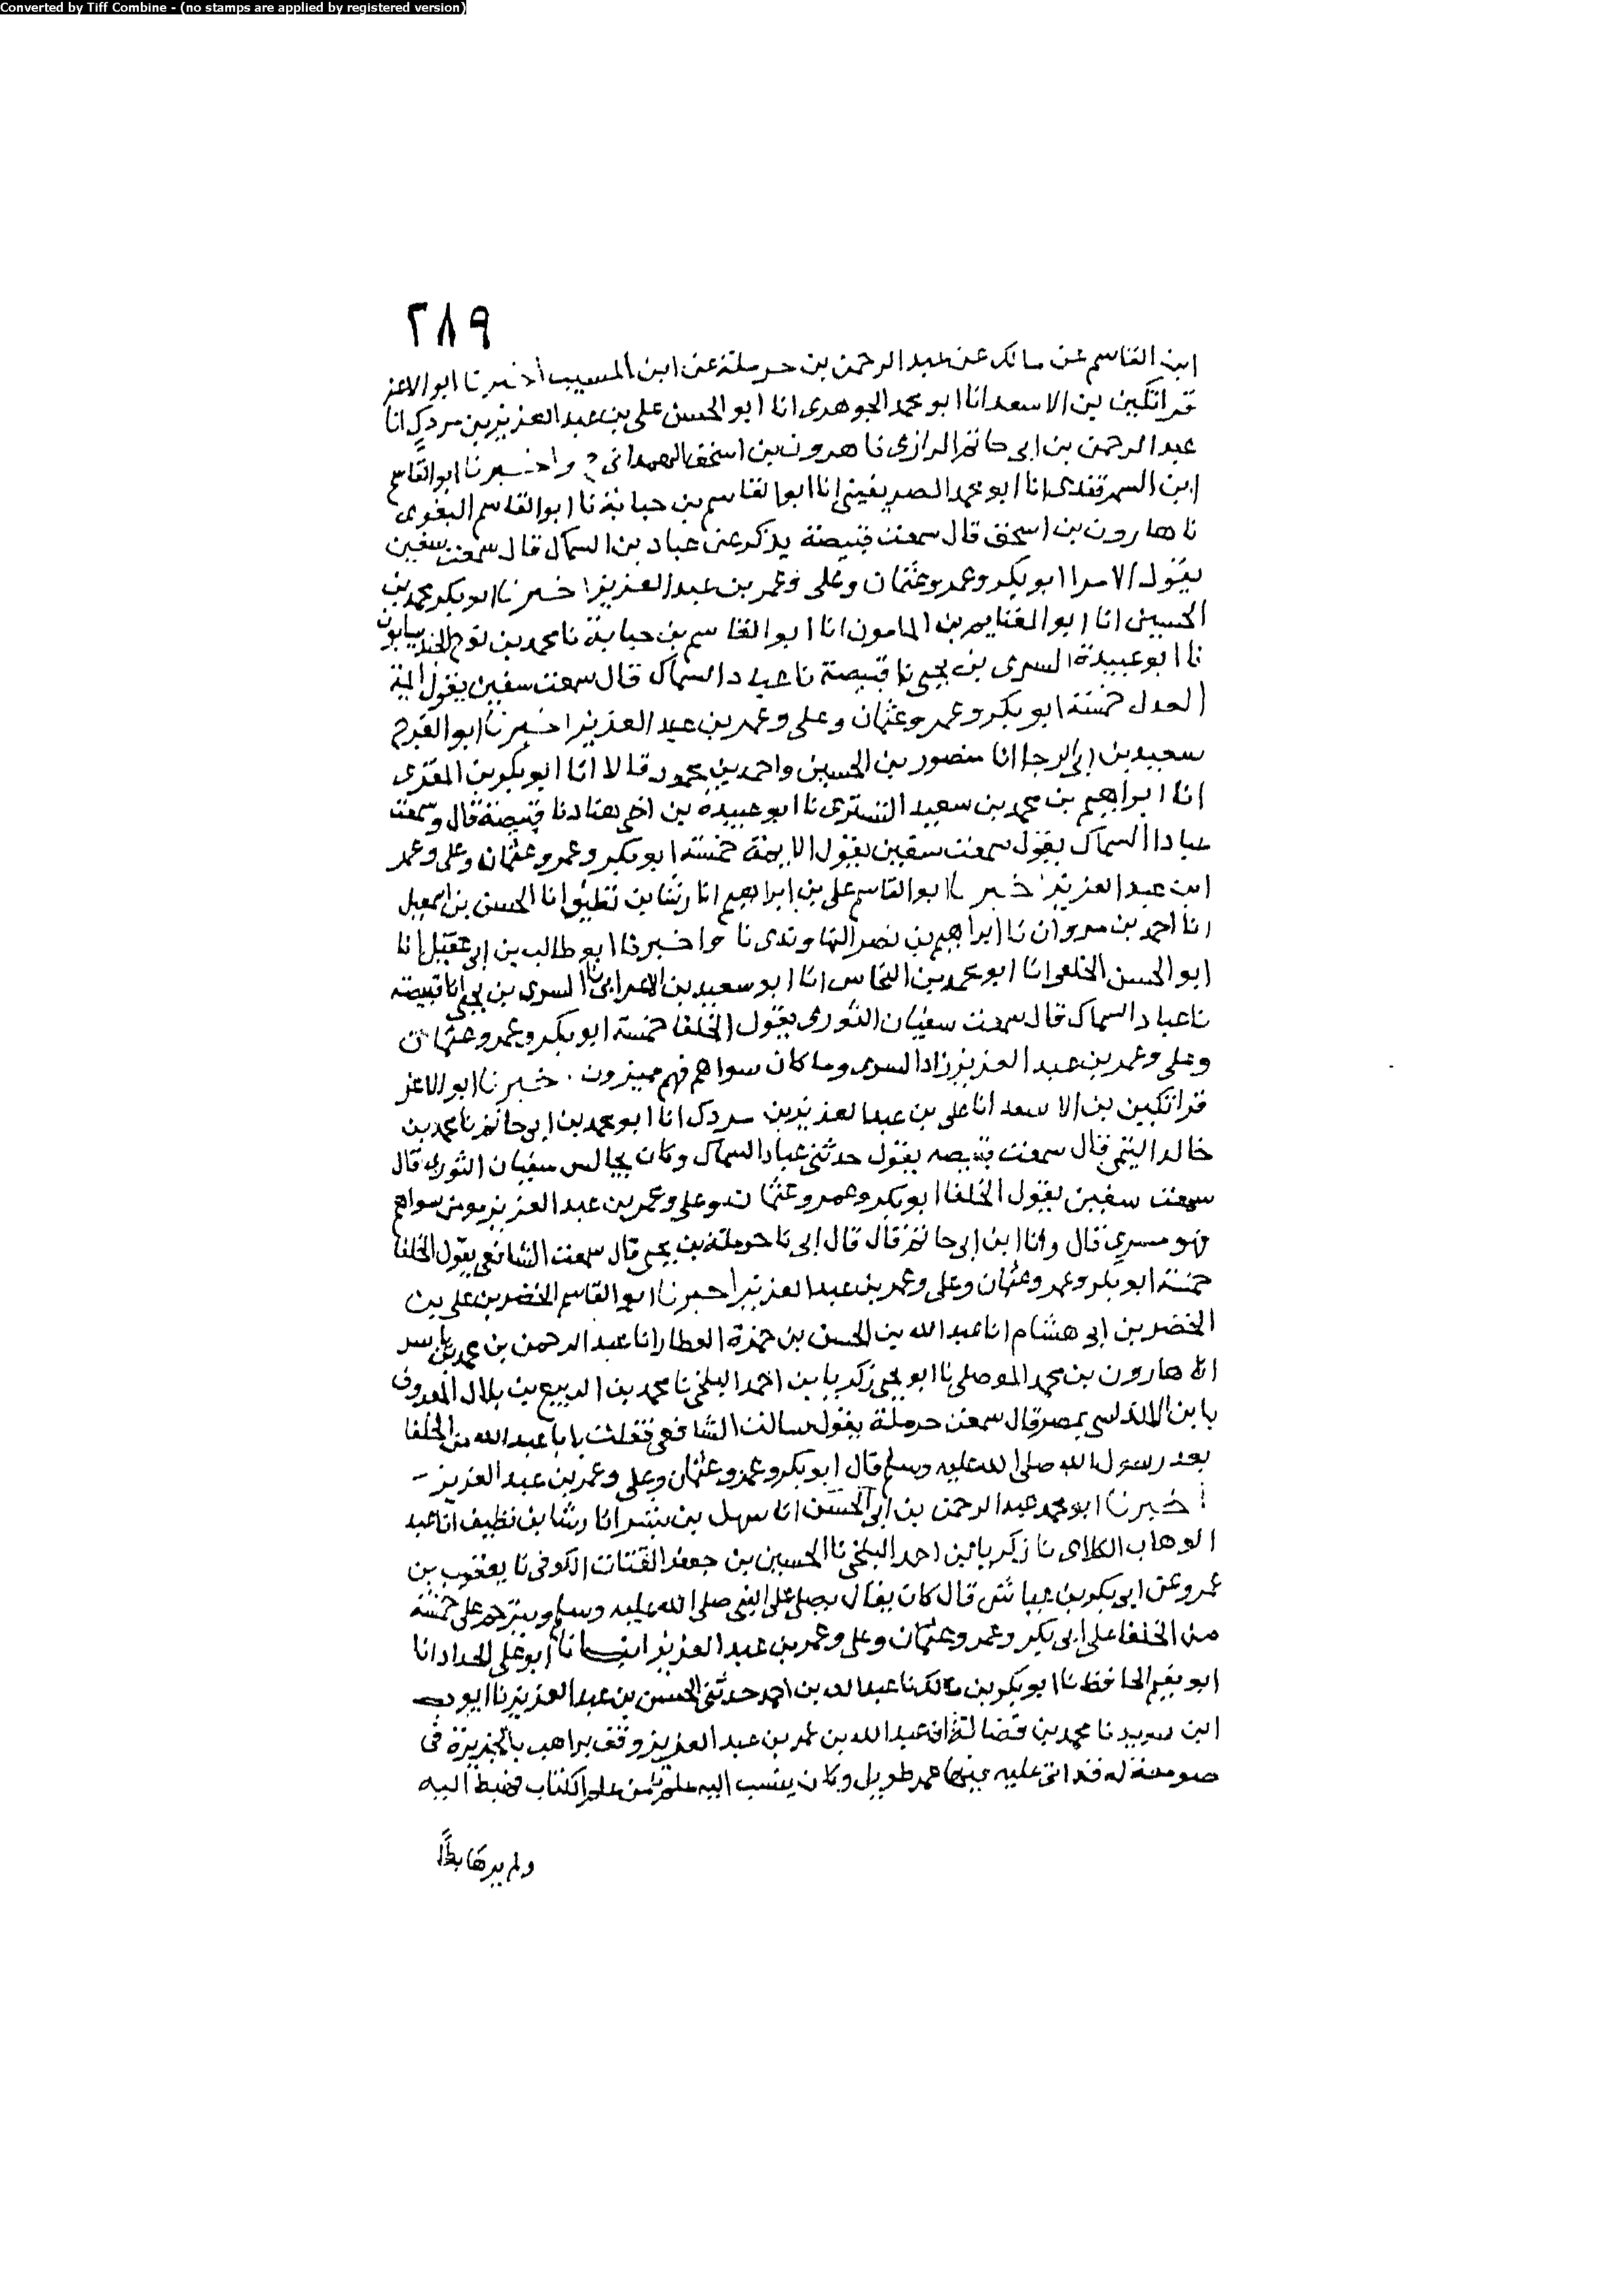 Converted by Tiff Combine - (no stamps are applied by registered version)
٢٨٩
ابن القاسم عن مالك عن عبد الرحمن بن حرملة عن ابن المسيب أخبرنا ابو الاعز
قراتكين بن الاسعد انا ابو محمد الجوهرى انا ابو الحسن على بن عبد العزيز بن مردك انا
عبد الرحمن بن ابى حاتم الرازى نا هرون بن اسحق الهمدانى ح واخبرنا ابو القاسم
ابن السمرقندى انا ابو محمد الصريفينى انا ابو القاسم بن حبابة نا ابو القاسم البغوى
نا هارون بن اسحق قال سمعت قبيصة يذكر عن عباد بن السماك قال سمعت سفين
يقول الامرا ابو بكر وعمر وعثمان وعلى وعمر بن عبد العزيز اخبرنا ابو بكر محمد بن
الحسين انا ابو الغنايم بن المامون انا ابو القاسم بن حبابة نا محمد بن نوح الجنديسابورى
نا ابو عبيدة السرى بن يحيى نا قبيصة نا عباد السماك قال سمعت سفين يقول ايمة
العدل خمسة ابو بكر وعمر وعثمان وعلى وعمر بن عبد العزيز اخبرنا ابو الفرج
سعيد بن ابى الرجا انا منصور بن الحسين واحمد بن محمود قالا انا ابو بكر بن المقرى
انا ابراهيم بن محمد بن سعيد التسترى نا ابو عبيدة بن اخى هناد نا قبيصة قال وسمعت
عبادا السماك يقول سمعت سفين يقول الايمة خمسة ابو بكر وعمر وعثمان وعلى وعمر
ابن عبد العزيز اخبرنا ابو القاسم على بن ابراهيم انا رشا بن نظيف انا الحسن بن اسمعيل
انا احمد بن مروان نا ابراهيم بن نصر النهاوندى نا ح واخبرنا ابو طالب بن ابى عقيل انا
ابو الحسن الخلعى انا ابو محمد بن النحاس انا ابو سعيد بن الاعرابى نا السرى بن يحيى انا قبيصة
نا عباد السماك قال سمعت سفيان الثورى يقول الخلفا خمسة ابو بكر وعمر وعثمان
وعلى وعمر بن عبد العزيز زاد السرى وما كان سواهم فهم مبتزون . اخبرنا ابو الاعز
قراتكين بن الاسعد انا على بن عبد العزيز بن مردك انا ابو محمد بن ابى حاتم نا محمد بن
خالد اليتمى قال سمعت قبيصه يقول حدثنى عباد السماك وكان يجالس سفيان الثورى قال
سمعت سفين يقول الخلفا ابو بكر وعمر وعثمان وعلى وعمر بن عبد العزيز ومن سواهم
فهو مبتز قال وانا ابن ابى حاتم قال قال ابى نا حرملة بن يحيى قال سمعت الشافعى يقول الخلفا
خمسة ابو بكر وعمر وعثمان وعلى وعمر بن عبد العزيز اخبرنا ابو القاسم الخضر بن على بن
الخضر بن ابى هشام انا عبد الله بن الحسن بن حمزة العطار انا عبد الرحمن بن محمد بن ياسر
انا هارون بن محمد الموصلى نا ابو يحيى زكريا بن احمد البلخى نا محمد بن الربيع بن بلال المعروف
بابن الاندلسى بمصر قال سمعت حرملة يقول سالت الشافعى فقلت يابا عبد الله من الخلفا
بعد رسول الله صلى الله عليه وسلم قال ابو بكر وعمر وعثمان وعلى وعمر بن عبد العزيز -
اخبرنا ابو محمد عبد الرحمن بن ابى الحسن انا سهل بن بشر انا رشا بن نظيف انا عبد
الوهاب الكلابى نا زكريا بن احمد البلخى نا الحسين بن جعفر القتات الكوفى نا يعقوب بن
عمرو عن ابى بكر بن عياش قال كان يقال يصلى على النبى صلى الله عليه وسلم ويترحم على خمسة
من الخلفا على ابى بكر وعمر وعثمان وعلى وعمر بن عبد العزيز انبانا ابو على الحداد انا
ابو نعيم الحافظ نا ابو بكر بن مالك نا عبد الله بن احمد حدثنى الحسن بن عبد العزيز نا ايوب
ابن سويد نا محمد بن فضالة ان عبد الله بن عمر بن عبد العزيز وقف براهب بالجزيرة فى
صومعة له قد اتى عليه فيها عمر طويل وكان ينسب اليه علم من علم الكتاب فهبط اليه
ولم ير هابطا